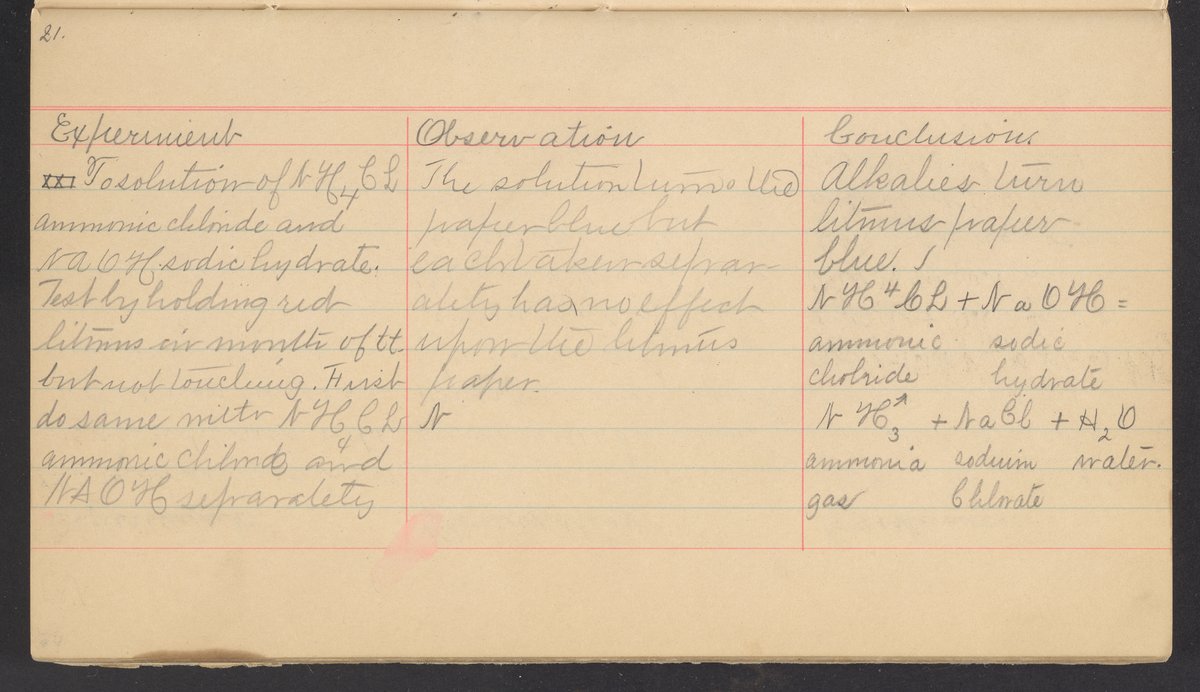 21.
Experiment
XXI To solution of NH4CL
ammonic chloride and
NaOH sodic hydrate.
Test by holding red
litmus in mouth of tt.
but not touching. First
do same with NH4CL
ammonic chloride and
NAOH separately
Observation
The solution turns the
paper blue but
each taken separ-
ately has no effect
upon the litmus
paper.
N
Conclusions
Alkalies turn
litmus paper
blue.
NH4CL + NaOH =
ammonic sodic
cholride hydrate
NH3↑ + NaCl + H2O
ammonia sodium water.
gas Chlorate